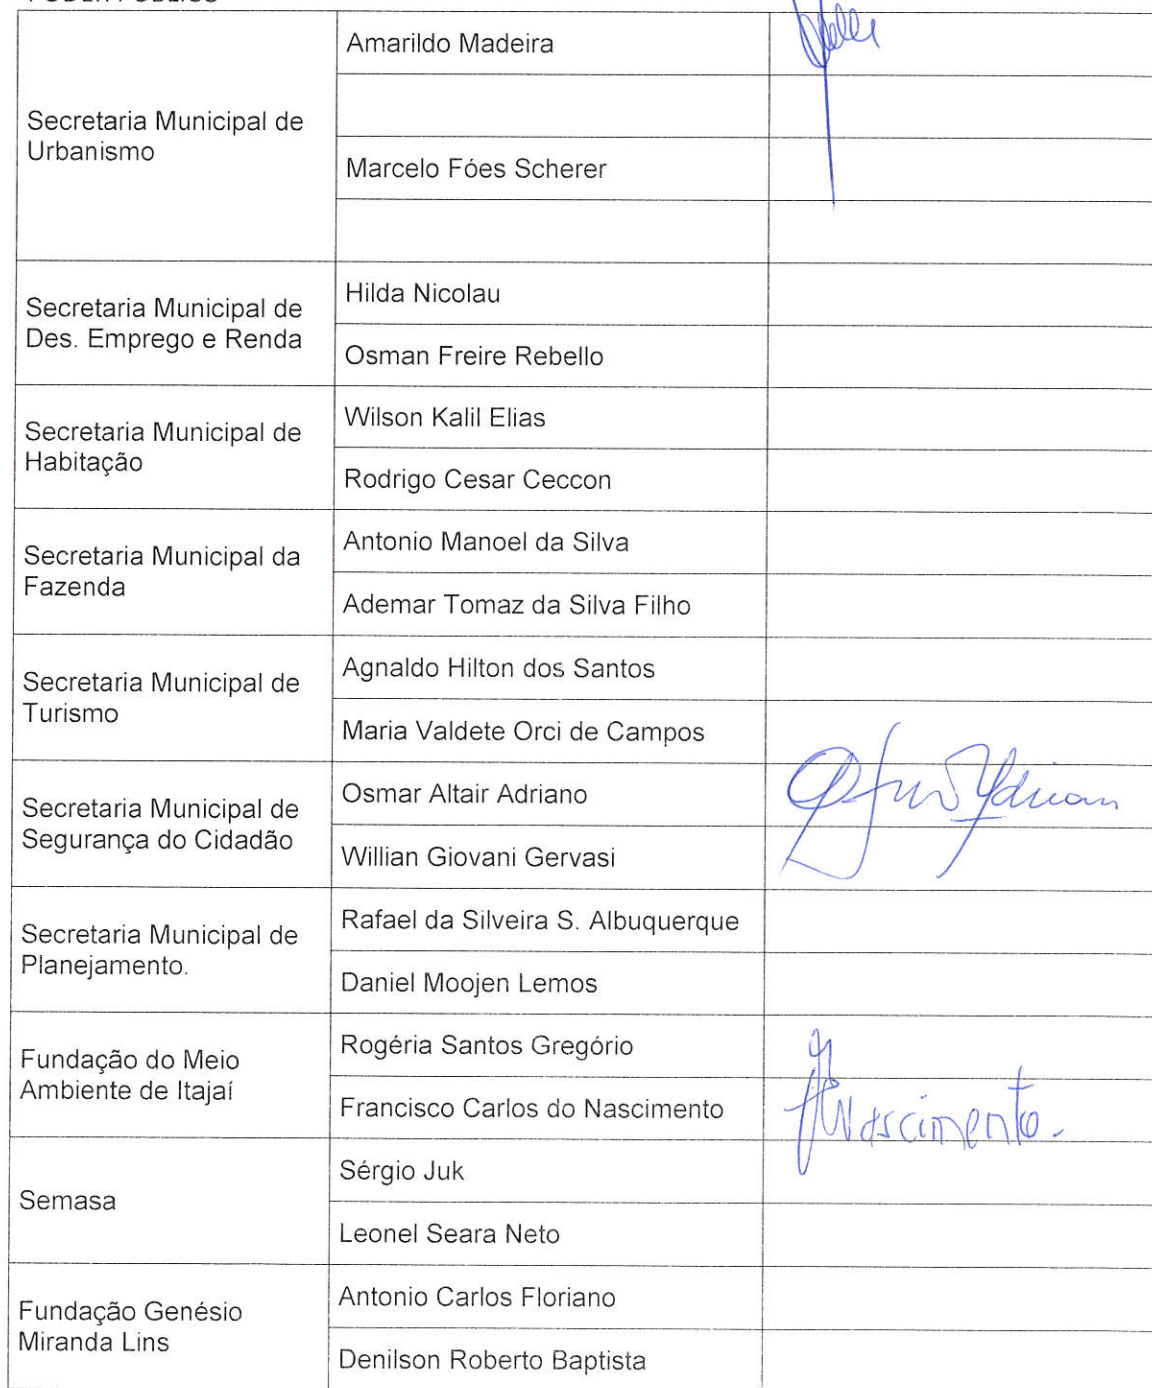 PODER PÚBLICO
Amarildo Madeira
Secretaria Municipal de
Urbanismo
Marcelo Fóes Scherer
Secretaria Municipal de
Des. Emprego e Renda
Hilda Nicolau
Osman Freire Rebello
Secretaria Municipal de
Habitação
Wilson Kalil Elias
Rodrigo Cesar Ceccon
Secretaria Municipal da
Fazenda
Antonio Manoel da Silva
Ademar Tomaz da Silva Filho
Secretaria Municipal de
Turismo
Agnaldo Hilton dos Santos
Maria Valdete Orci de Campos
Secretaria Municipal de
Segurança do Cidadão
Osmar Altair Adriano
Willian Giovani Gervasi
Secretaria Municipal de
Planejamento.
Rafael da Silveira S. Albuquerque
Daniel Moojen Lemos
Fundação do Meio
Ambiente de Itajaí
Rogéria Santos Gregório
Francisco Carlos do Nascimento
Nascimento.
Semasa
Sérgio Juk
Leonel Seara Neto
Fundação Genésio
Miranda Lins
Antonio Carlos Floriano
Denilson Roberto Baptista